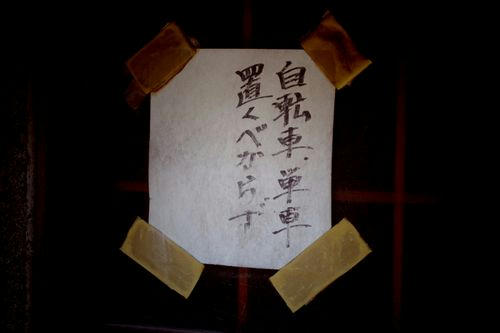 自転車、単車
置くべからず